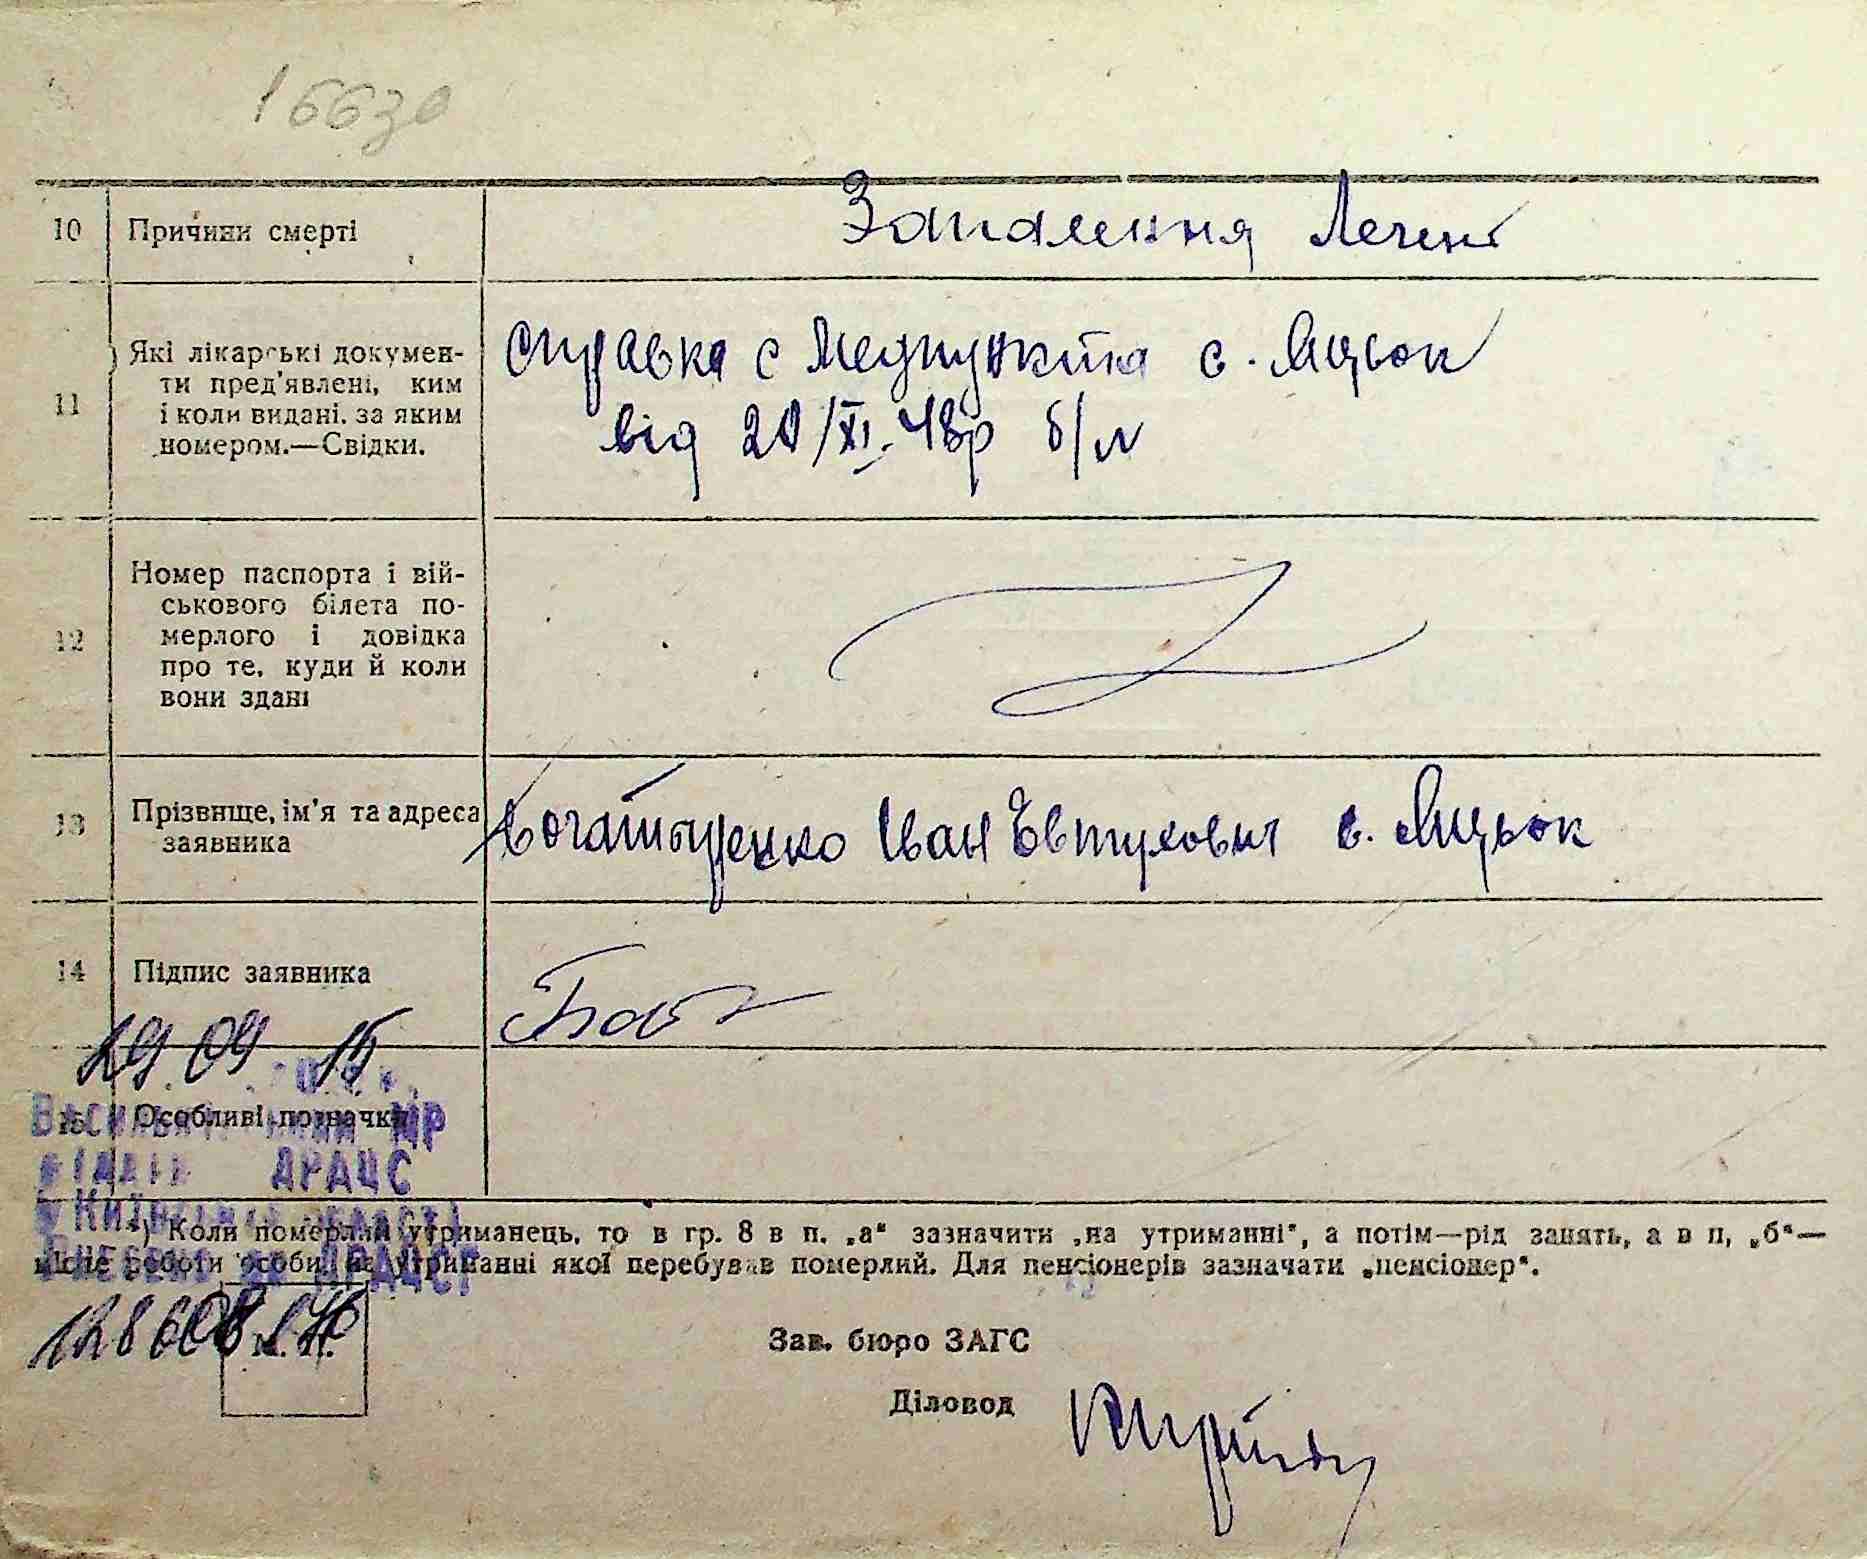 16630
10 Причини смерті Запалення Легені
11 Які лікарські докумен-
ти пред'явлені, ким
і коли видані. за яким
номером.—Свідки.
справка с Медпункта с. Яцьок
від 20/XI. 48р б/н
12 Номер паспорта і вій-
ськового білета по-
мерлого і довідка
про те, куди й коли
вони здані
13 Прізвище, ім'я та адреса
заявника
Богатыренко Іван Евтухович с. Яцьок
14 Підпис заявника
29 09 15
15 Особливі позначки
МР
відділ ДРАЦС
Київській області
Внесено до ДРАЦСГ
*) Коли померлий утриманець, то в гр. 8 в п. „а“ зазначити „на утриманні“, а потім—рід занять, а в п, „б“—
місце роботи особи, на утриманні якої перебував померлий. Для пенсіонерів зазначати „пенсіонер“.
М. П.
Зав. бюро ЗАГС
Діловод